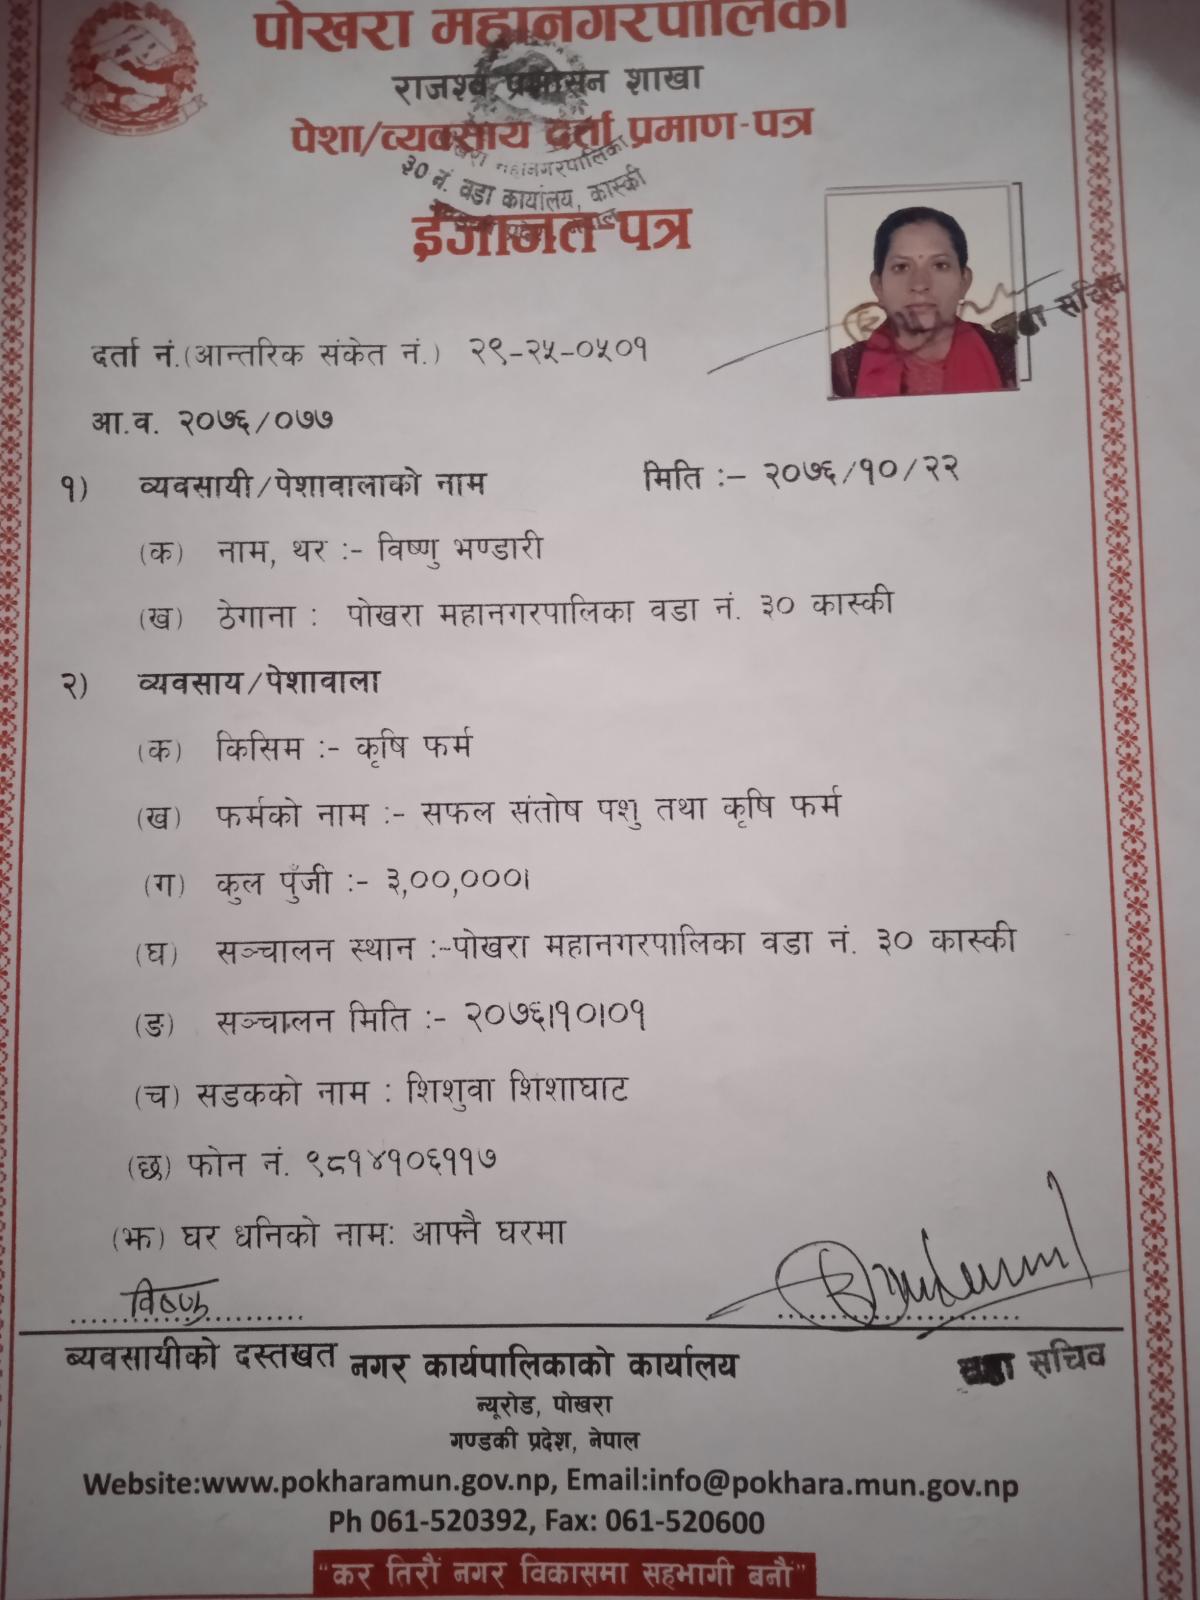 पोखरा महानगरपालिका
राजश्व प्रशासन शाखा
पेशा/व्यवसाय दर्ता प्रमाण-पत्र
पोखरा महानगरपालिका
३० नं. वडा कार्यालय, कास्की
गण्डकी प्रदेश, नेपाल
ईजाजत-पत्र
वडा सचिव
दर्ता नं.(आन्तरिक संकेत नं.) २९-२५-०५०१
आ.व. २०७६/०७७
१) व्यवसायी/पेशावालाको नाम मिति :– २०७६/१०/२२
(क) नाम, थर :- विष्णु भण्डारी
(ख) ठेगाना : पोखरा महानगरपालिका वडा नं. ३० कास्की
२) व्यवसाय/पेशावाला
(क) किसिम :- कृषि फर्म
(ख) फर्मको नाम :- सफल संतोष पशु तथा कृषि फर्म
(ग) कुल पुँजी :- ३,००,०००।
(घ) सञ्चालन स्थान :-पोखरा महानगरपालिका वडा नं. ३० कास्की
(ङ) सञ्चालन मिति :- २०७६।१०।०१
(च) सडकको नाम : शिशुवा शिशाघाट
(छ) फोन नं. ९८१४१०६११७
(झ) घर धनिको नामः आफ्नै घरमा
विष्णु
व्यवसायीको दस्तखत नगर कार्यपालिकाको कार्यालय वडा सचिव
न्यूरोड, पोखरा
गण्डकी प्रदेश, नेपाल
Website:www.pokharamun.gov.np, Email:info@pokhara.mun.gov.np
Ph 061-520392, Fax: 061-520600
"कर तिरौं नगर विकासमा सहभागी बनौं"